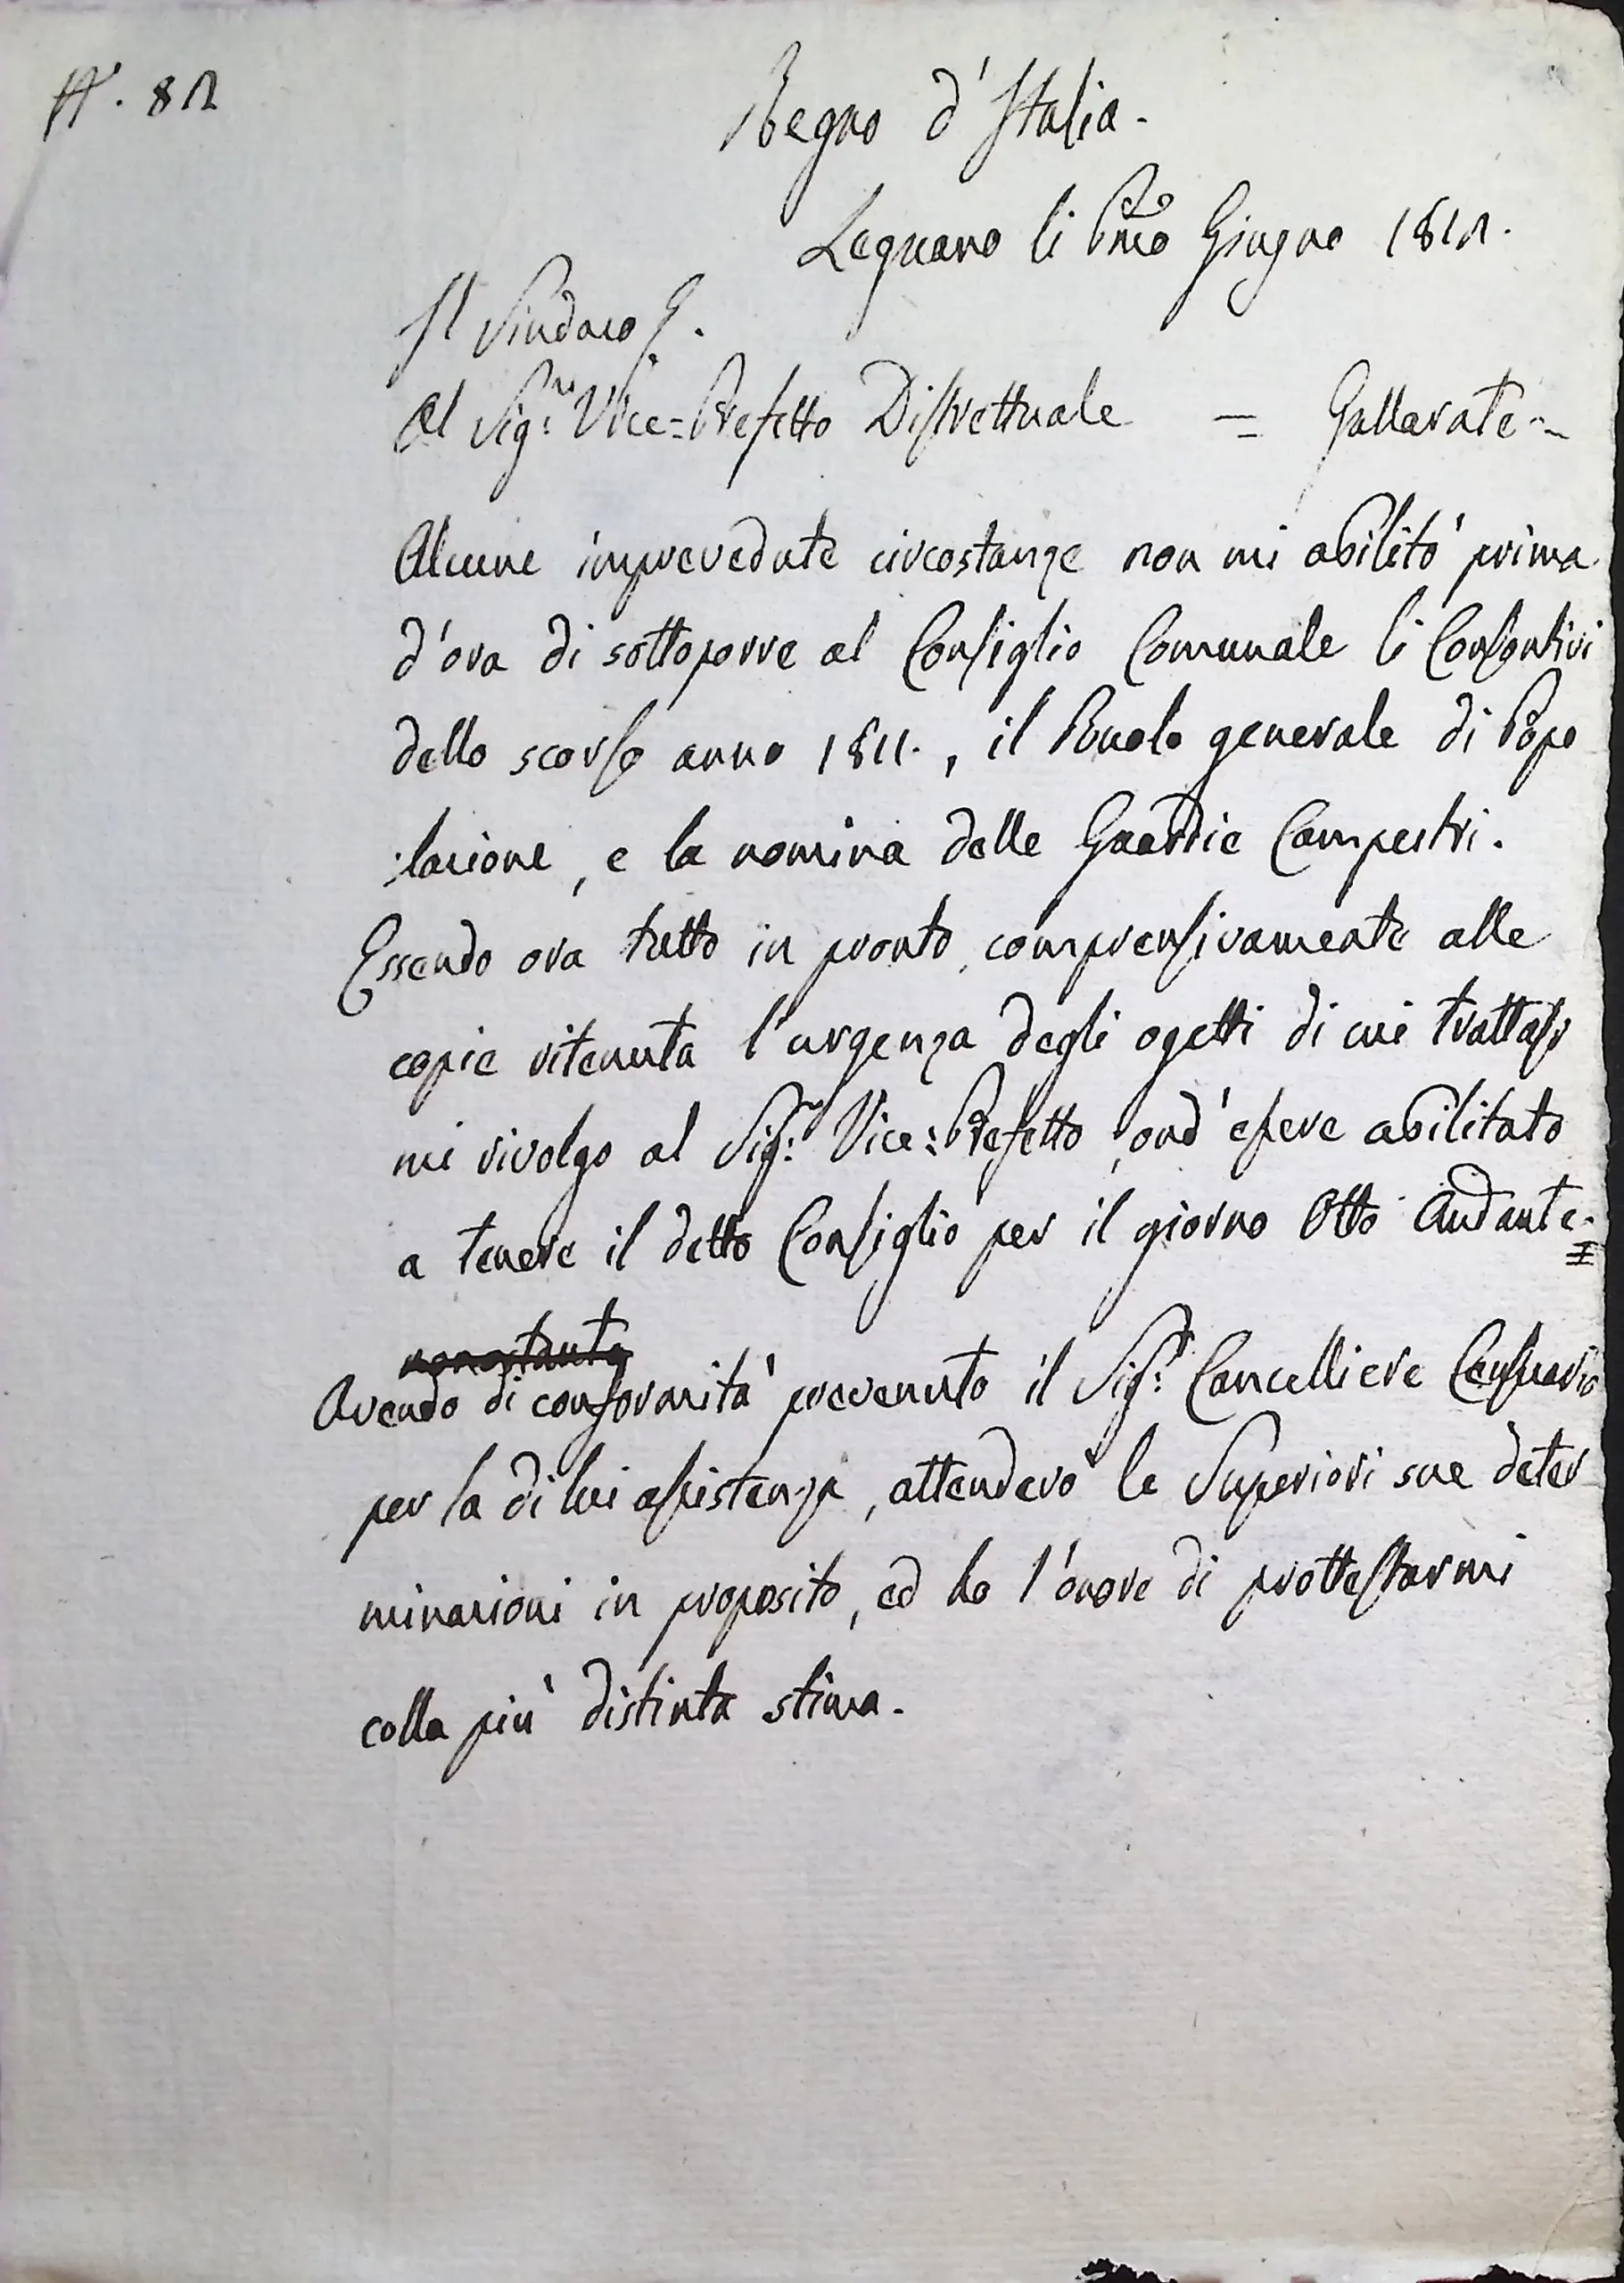 N. 82
Regno d'Italia.
Legnano li Pmo Giugno 1812.
Il Sindaco
Al Sig.re Vice=Prefetto Distrettuale = Gallarate
Alcune imprevedute circostanze non mi abilitò prima
d'ora di sottoporre al Consiglio Comunale li Consontivi
dello scorso anno 1811., il Ruolo generale di Popo
:lazione, e la nomina delle Guardie Campestri.
Essendo ora tutto in pronto, comprensivamente alle
copie ritenuta l'urgenza degli ogetti di cui trattasi
mi rivolgo al Sig.r Vice:Prefetto, ond'essere abilitato
a tenere il detto Consiglio per il giorno Otto Andante.
nonostante
Avendo di conformità prevenuto il Sig.r Cancelliere Censuario
per la di lui assistenza, attenderò le Superiori sue deter
minazioni in proposito, ed ho l'onore di prottestarmi
colla più distinta stima.